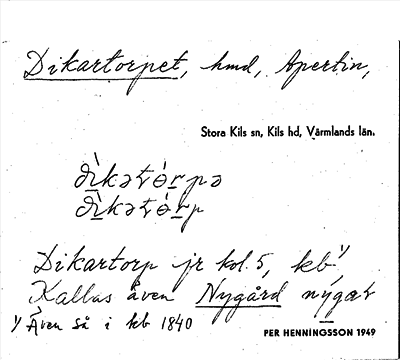 Dikartorpet, hmd, Apertin,
Stora Kils sn, Kils hd, Värmlands län.
Dikartorp jr kol. 5, kb 1)
Kallas även Nygård
1) Även så i kb 1840
PER HENNINGSSON 1949